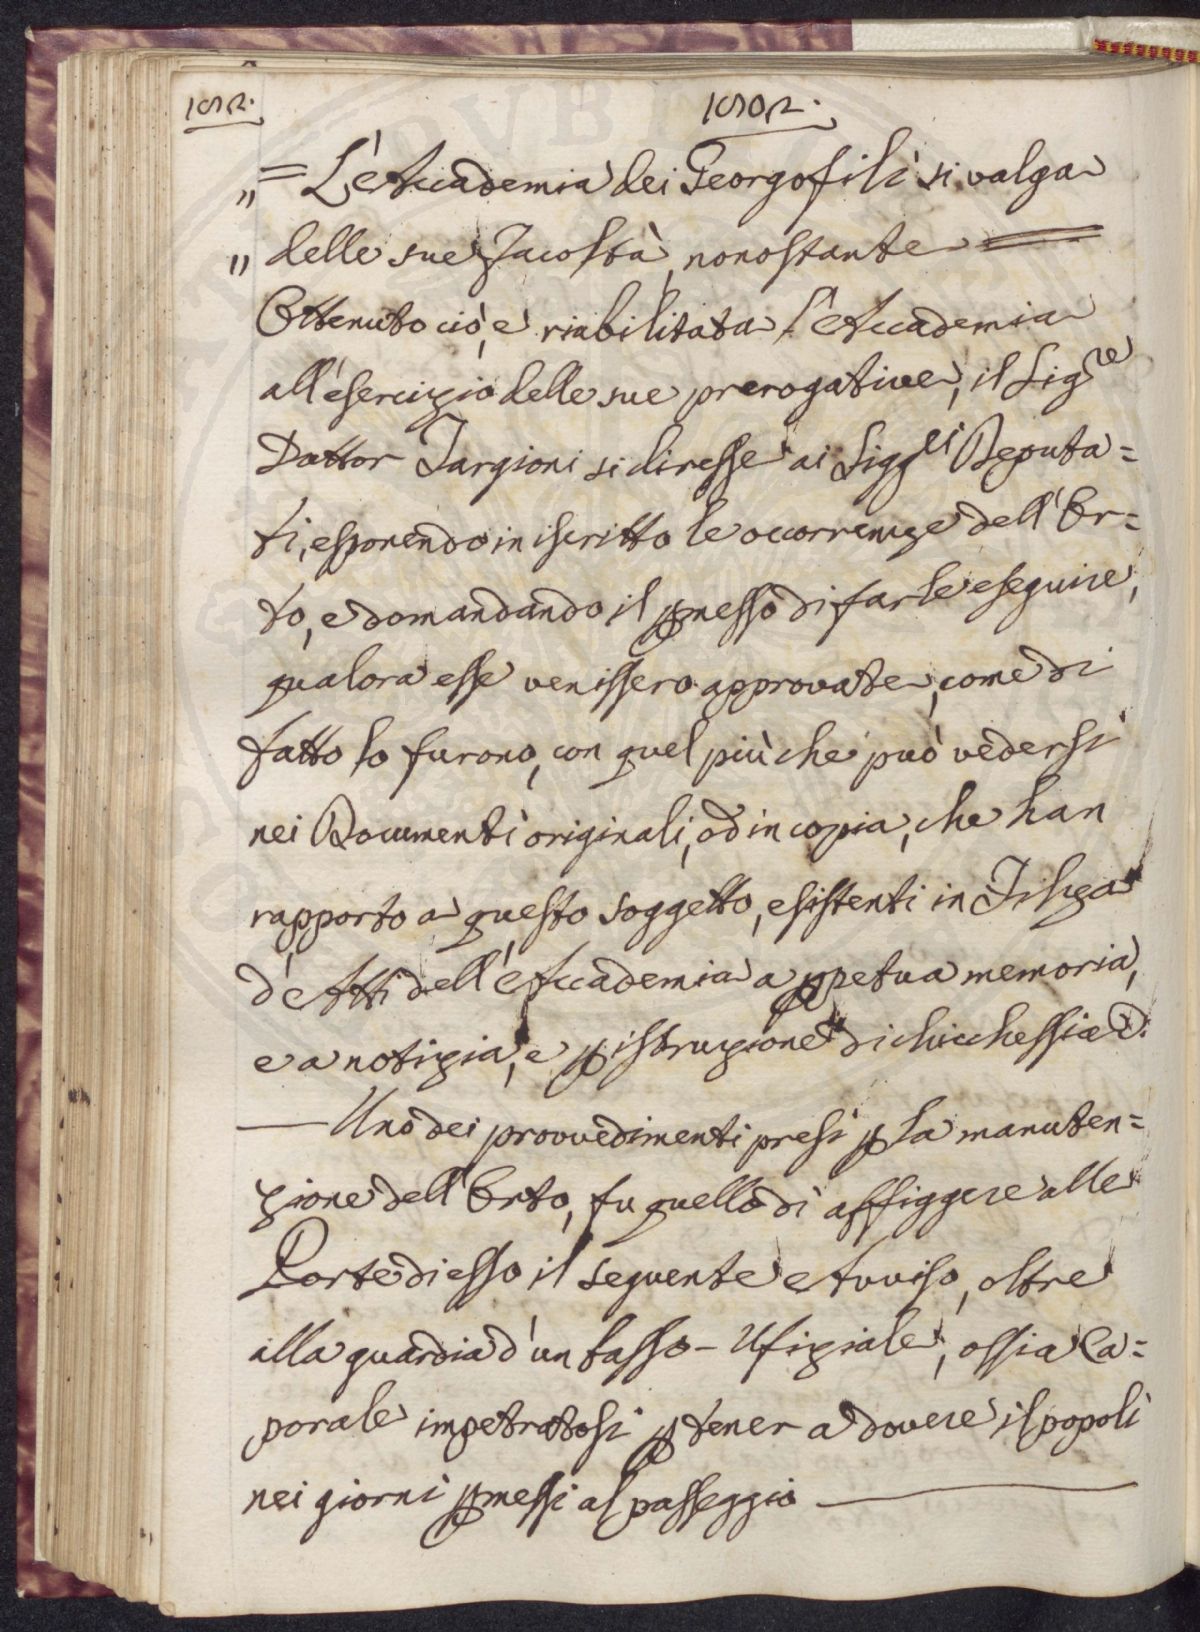 1802.
„= L'Accademia dei Georgofili si valga
„ delle sue Facoltà, nonostante =
Ottenuto ciò, e riabilitata l'Accademia
all'esercizio delle sue prerogative, il Sigre
Dottor Targioni si diresse ai Siggri Deputa=
ti, esponendo in iscritto le occorrenze dell'Or=
to, e domandando il pmesso di farle eseguire,
qualora esse venissero approvate, come di
fatto lo furono, con quel più che può vedersi
nei Documenti originali, od in copia, che han
rapporto a questo soggetto, esistenti in Filza
d'Atti dell'Accademia a ppetua memoria,
e a notizia, e p istruzione di chicchessia.
— Uno dei provvedimenti presi p la manuten=
zione dell'Orto, fu quello di affiggere alle
Porte di esso il seguente Avviso, oltre
alla guardia d'un basso-Ufiziale, ossia Ca=
porale impetratosi p tener a dovere il popoli
nei giorni pmessi al passeggio —